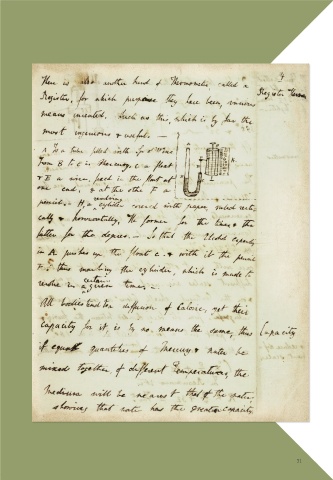 There is also another kind of Thermometer called a
Register, for which purpose they have been various
means invented. Such as this, which is by far the
most ingenious & useful. —
A is a tube filled with Sp of Wine
from B to E is Mercury, C a float
& D a wire, fixed in the float at
one end, & at the other to a
pencil. H, a cylinder covered with paper, ruled verti
cally & horizontally. The former for the time & the
latter for the degrees. — So that the Alcohol expands
in A pushes up the float C & with it the pencil
F. thus marking the cylinder, which is made to
revolve in a given certain times —
All bodies tend to a diffusion of Caloric, yet their
Capacity for it, is by no means the same, thus
if equal quantities of Mercury & water be
mixed together of different Temperatures, the
Medium will be nearest that of the water,
showing that water has the greater capacity
Register Thermom
Capacity